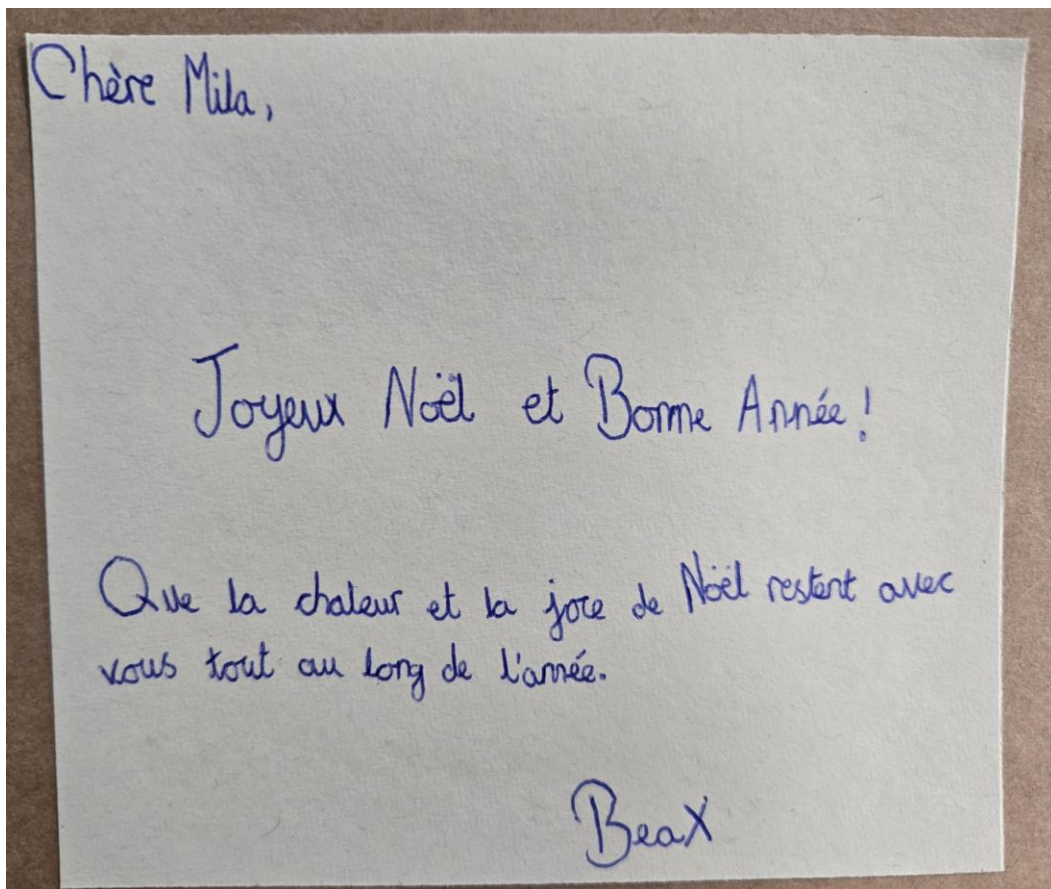 Chère Mila,
Joyeux Noël et Bonne Année!
Que la chaleur et la joie de Noël restent avec
vous tout au long de l'année.
Bea X